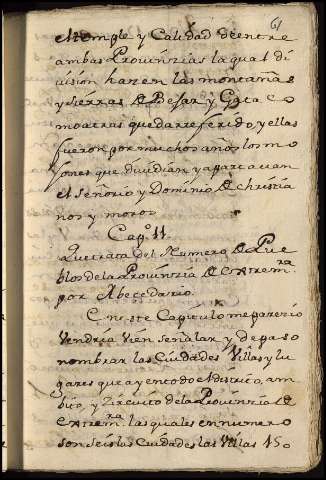 61
eltemple y Calidad de entre
ambas Provinzias la qual di
visión hazen las montañas
y sierras de Bejar y Gata co
moatras quedarreferido, y ellas
fueron por muchos años los mo
jones que dividian y apartavan
el Señorio y Dominio de christia
nos y moros.
Cap.º 11.
Que trata del Numero de Pue
blos de la Provinzia de Extrem.ra
por Abecedario.
Eneste Capitulo meparezio
vendria vien señalar y depaso
nombrar las Ciudades Villas y lu
gares que ay entodo eldistrito, am
bito, y Zircuito de la Provinzia de
Extrem.ra las quales en numero
son seis las Ciudades las Villas 150